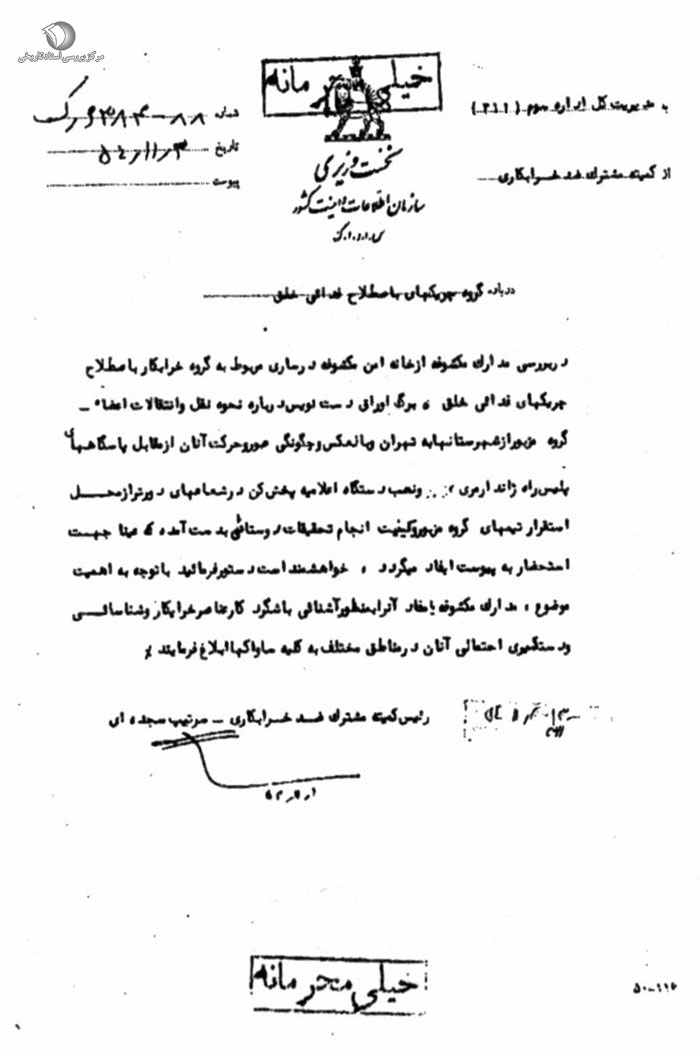 مرکز بررسی اسناد تاریخی
خیلی محرمانه
به مدیریت کل اداره سوم (۳۱۱)
از کمیته مشترک ضد خرابکاری
شماره
تاریخ ۵۴٫۱۱٫۳
پیوست
نخست وزیری
سازمان اطلاعات و امنیت کشور
س.ا.و.ا.ک
درباره گروه چریکهای باصطلاح فدائی خلق
در بررسی مدارک مکشوفه از خانه امن مکشوفه در ساری مربوط به گروه خرابکار باصطلاح
چریکهای فدائی خلق ، برگ اوراق دست نویس درباره نحوه نقل و انتقالات اعضاء
گروه مزبور از شهرستانها به تهران و بالعکس و چگونگی عبور و حرکت آنان از مقابل پاسگاههای
پلیس راه ژاندارمری و نصب دستگاه اعلامیه پخش کن در شعاعهای دورتر از محل
استقرار تیمهای گروه مزبور و کیفیت انجام تحقیقات روستائی بدست آمده که عینا جهت
استحضار به پیوست ایفاد میگردد ، خواهشمند است دستور فرمائید با توجه به اهمیت
موضوع ، مدارک مکشوفه یا مفاد آنرا بمنظور آشنائی با شگرد کار عناصر خرابکار و شناسائی
و دستگیری احتمالی آنان در مناطق مختلف به کلیه ساواکها ابلاغ فرمایند٪
رئیس کمیته مشترک ضد خرابکاری – سرتیپ سجده ای
خیلی محرمانه
۵۰–۱۱۶